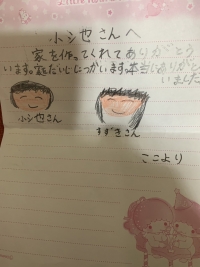 小シ也さんへ
家を作ってくれてありがとう
います。家だいじにつかいます。本当にありがと
いました
小シ也さん
すずきさん
ここより